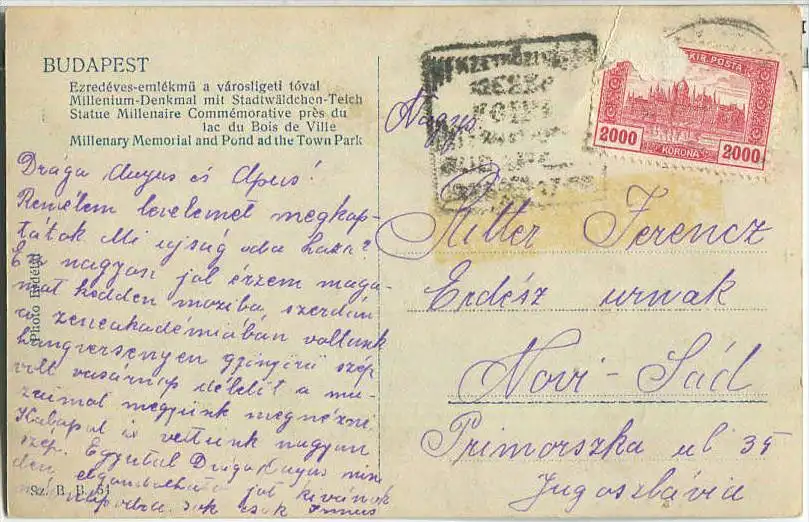 BUDAPEST
Ezredéves-emlékmű a városligeti tóval
Millenium-Denkmal mit Stadtwäldchen-Teich
Statue Millenaire Commémorative près du
lac du Bois de Ville
Millenary Memorial and Pond ad the Town Park
Drága Anyus és Apus!
Remélem levelemet megkap-
tátok Mi ujság oda haza?
Én nagyon jol érzem maga-
mat kedden moziba, szerdán
a zeneakadémiában voltunk
hangversenyen gyönyörű szép
volt vasárnap délelőt a mu-
zeumot megyünk megnézni
Kalapot is vettünk nagyon
szép. Egyuttal Drága Anyus min
den elgondolható jót kivánok
sok csok
Photo Erdélyi
Sz. B. B. 51
KIR. POSTA
2000 KORONA 2000
Nagys.
Ritter Ferencz
Erdész urnak
Novi-Sád
Primorszka ul 35
Jugoszlávia